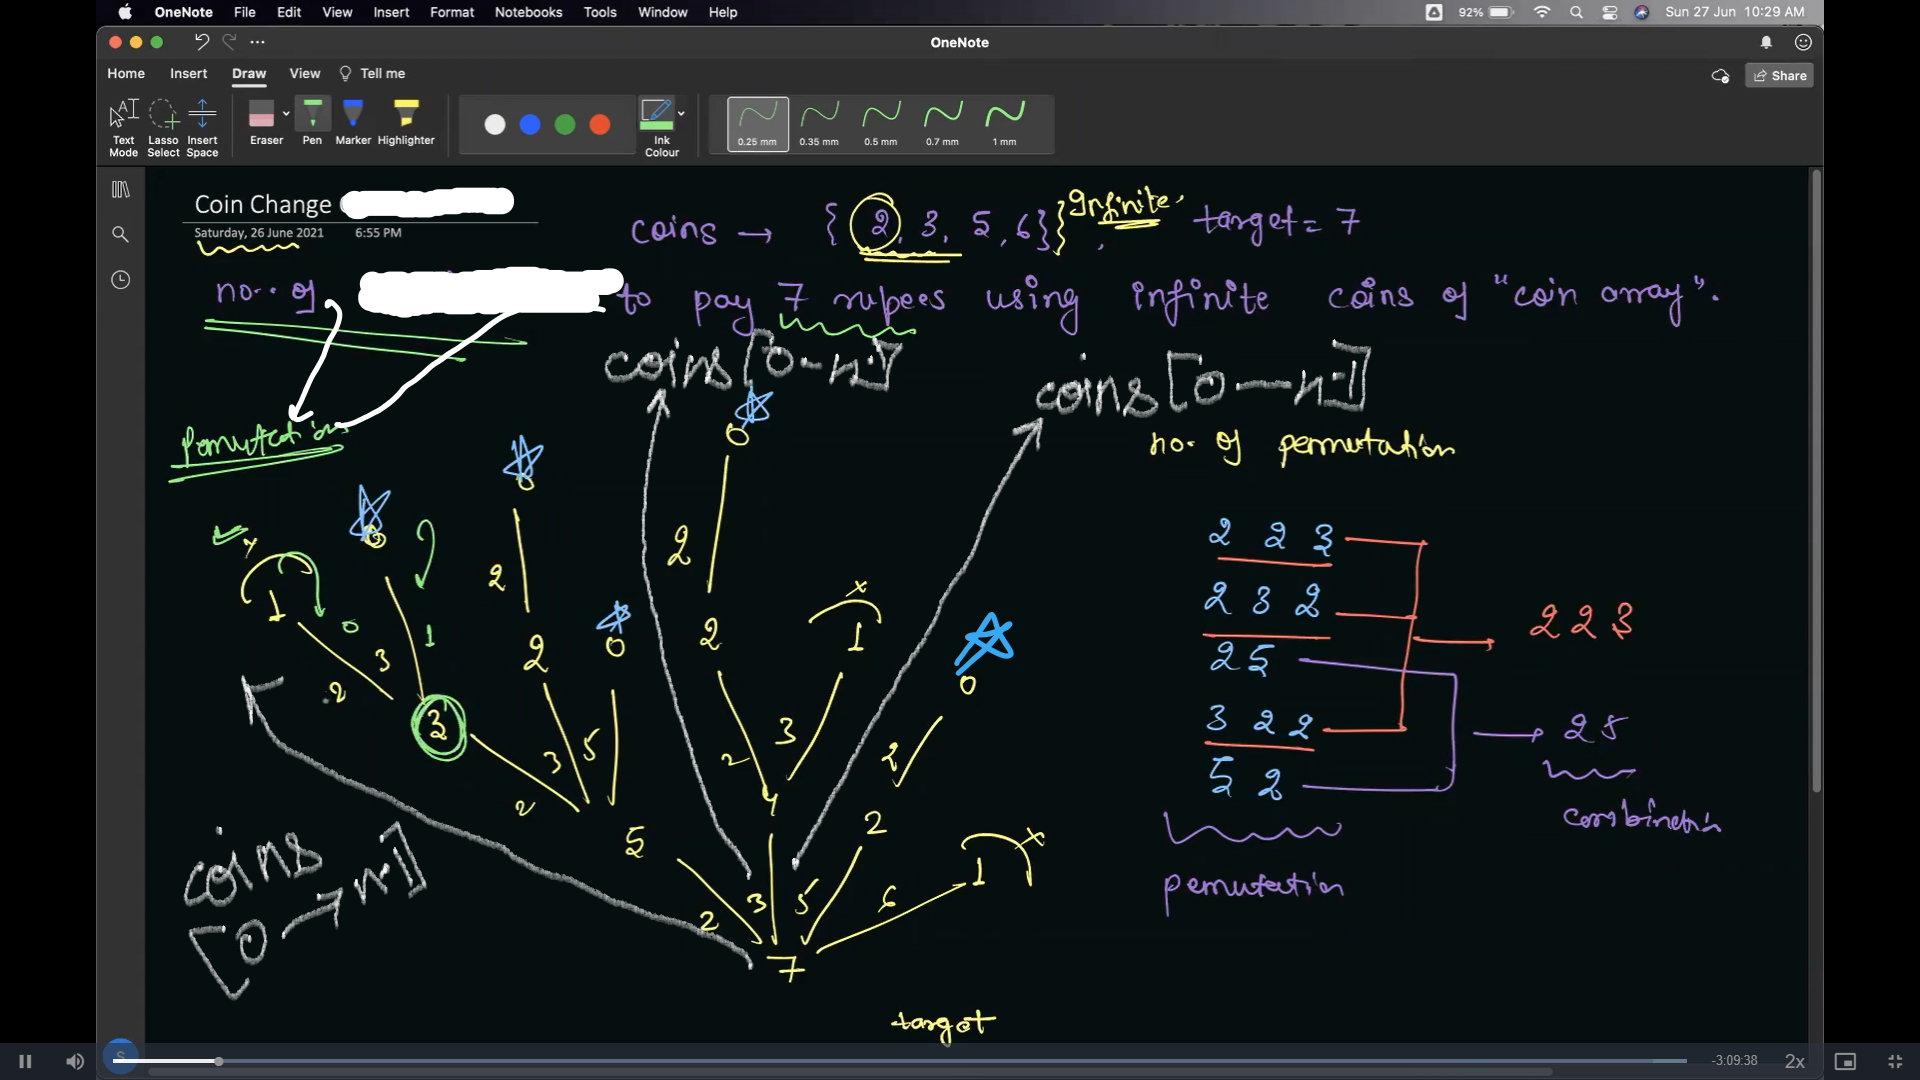 OneNote File Edit View Insert Format Notebooks Tools Window Help 92% Sun 27 Jun 10:29 AM
OneNote
Home Insert Draw View Tell me Share
Text Mode Lasso Select Insert Space Eraser Pen Marker Highlighter Ink Colour 0.25 mm 0.35 mm 0.5 mm 0.7 mm 1 mm
Coin Change
Saturday, 26 June 2021 6:55 PM
coins → { 2, 3, 5, 6 } } Infinite, target = 7
no. of to pay 7 rupees using infinite coins of "coin array".
coins [0-n] coins [0-n]
Permutations no. of permutation
0
0
0 2
2 2 3
2 3 2
2 2 3
2 5
3 2 2
2 5
5 2
combination
permutation
1 0 3 2 1 3
2 2 0
2 3 5 2 5
2 2 3 1 4
0 2 2
1
2 3 5 6
7
coins
[0→n]
target
S -3:09:38 2x